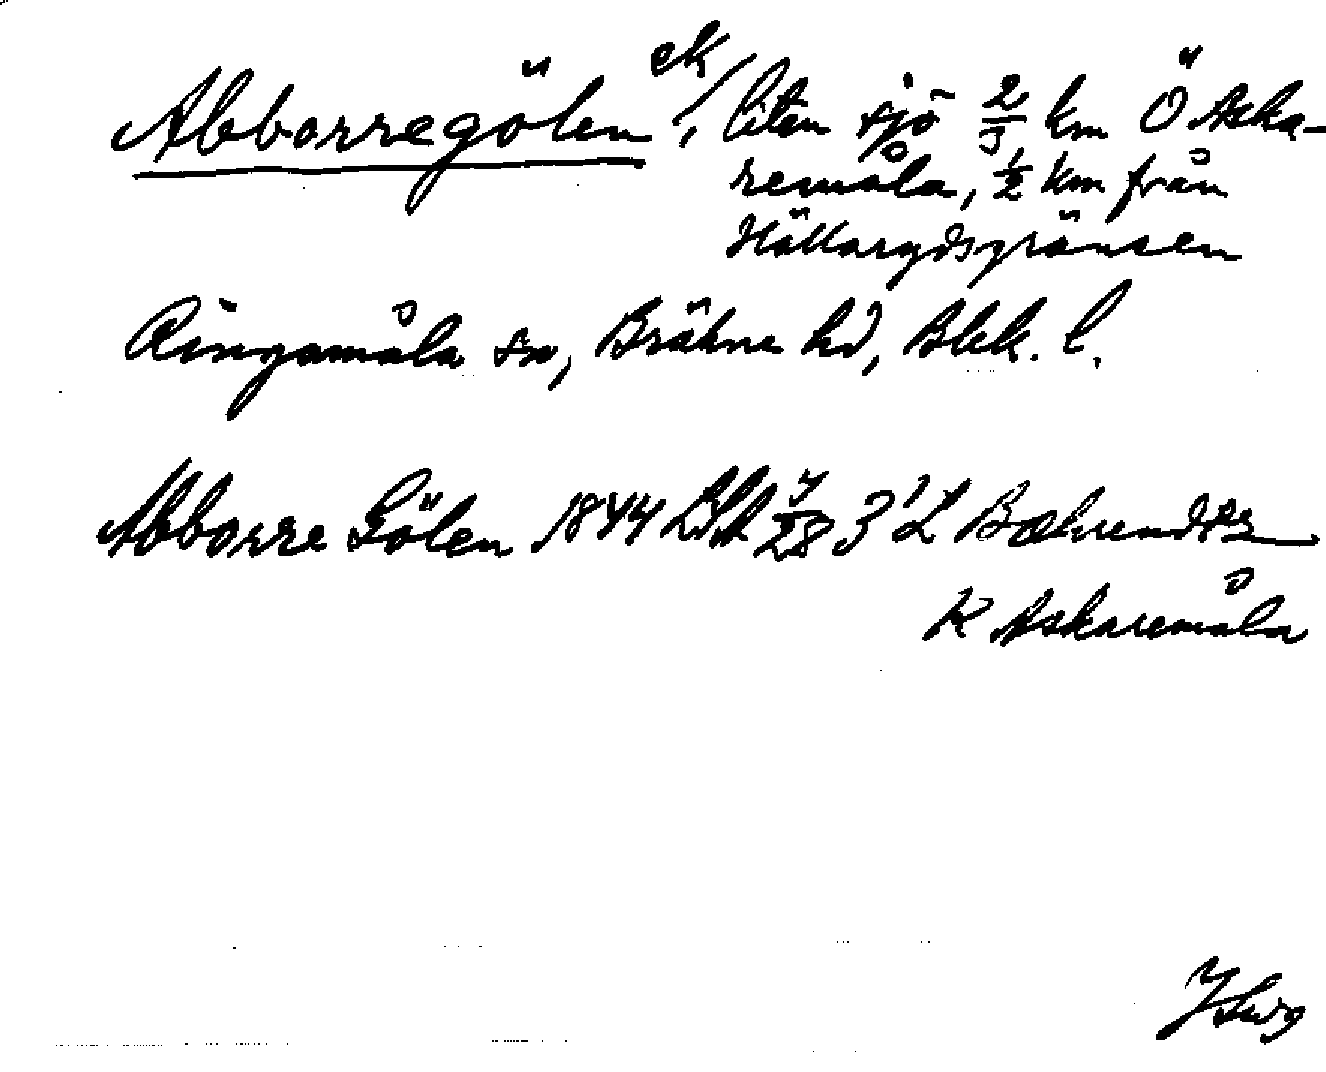 Abborregölen ek/, liten sjö 2/3 km Ö Aska-
remåla, 1/2 km från
Hällarydsgränsen
Ringamåla sn, Bräkne hd, Blek. l.
Abborre Gölen 1844 LSA 28 3 L
K Askaremåla